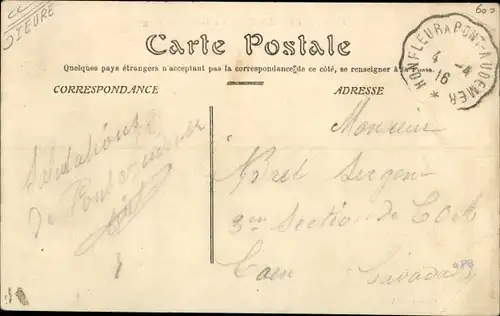 EURE
600
Carte Postale
Quelques pays étrangers n'acceptant pas la correspondance de ce côté, se renseigner à la Poste.
HONFLEUR A PONT-AUDEMER
4 -4
16
CORRESPONDANCE
ADRESSE
Salutations
de Pont audemer
Monsieur
Sergent
Section de
Caen
Calvados